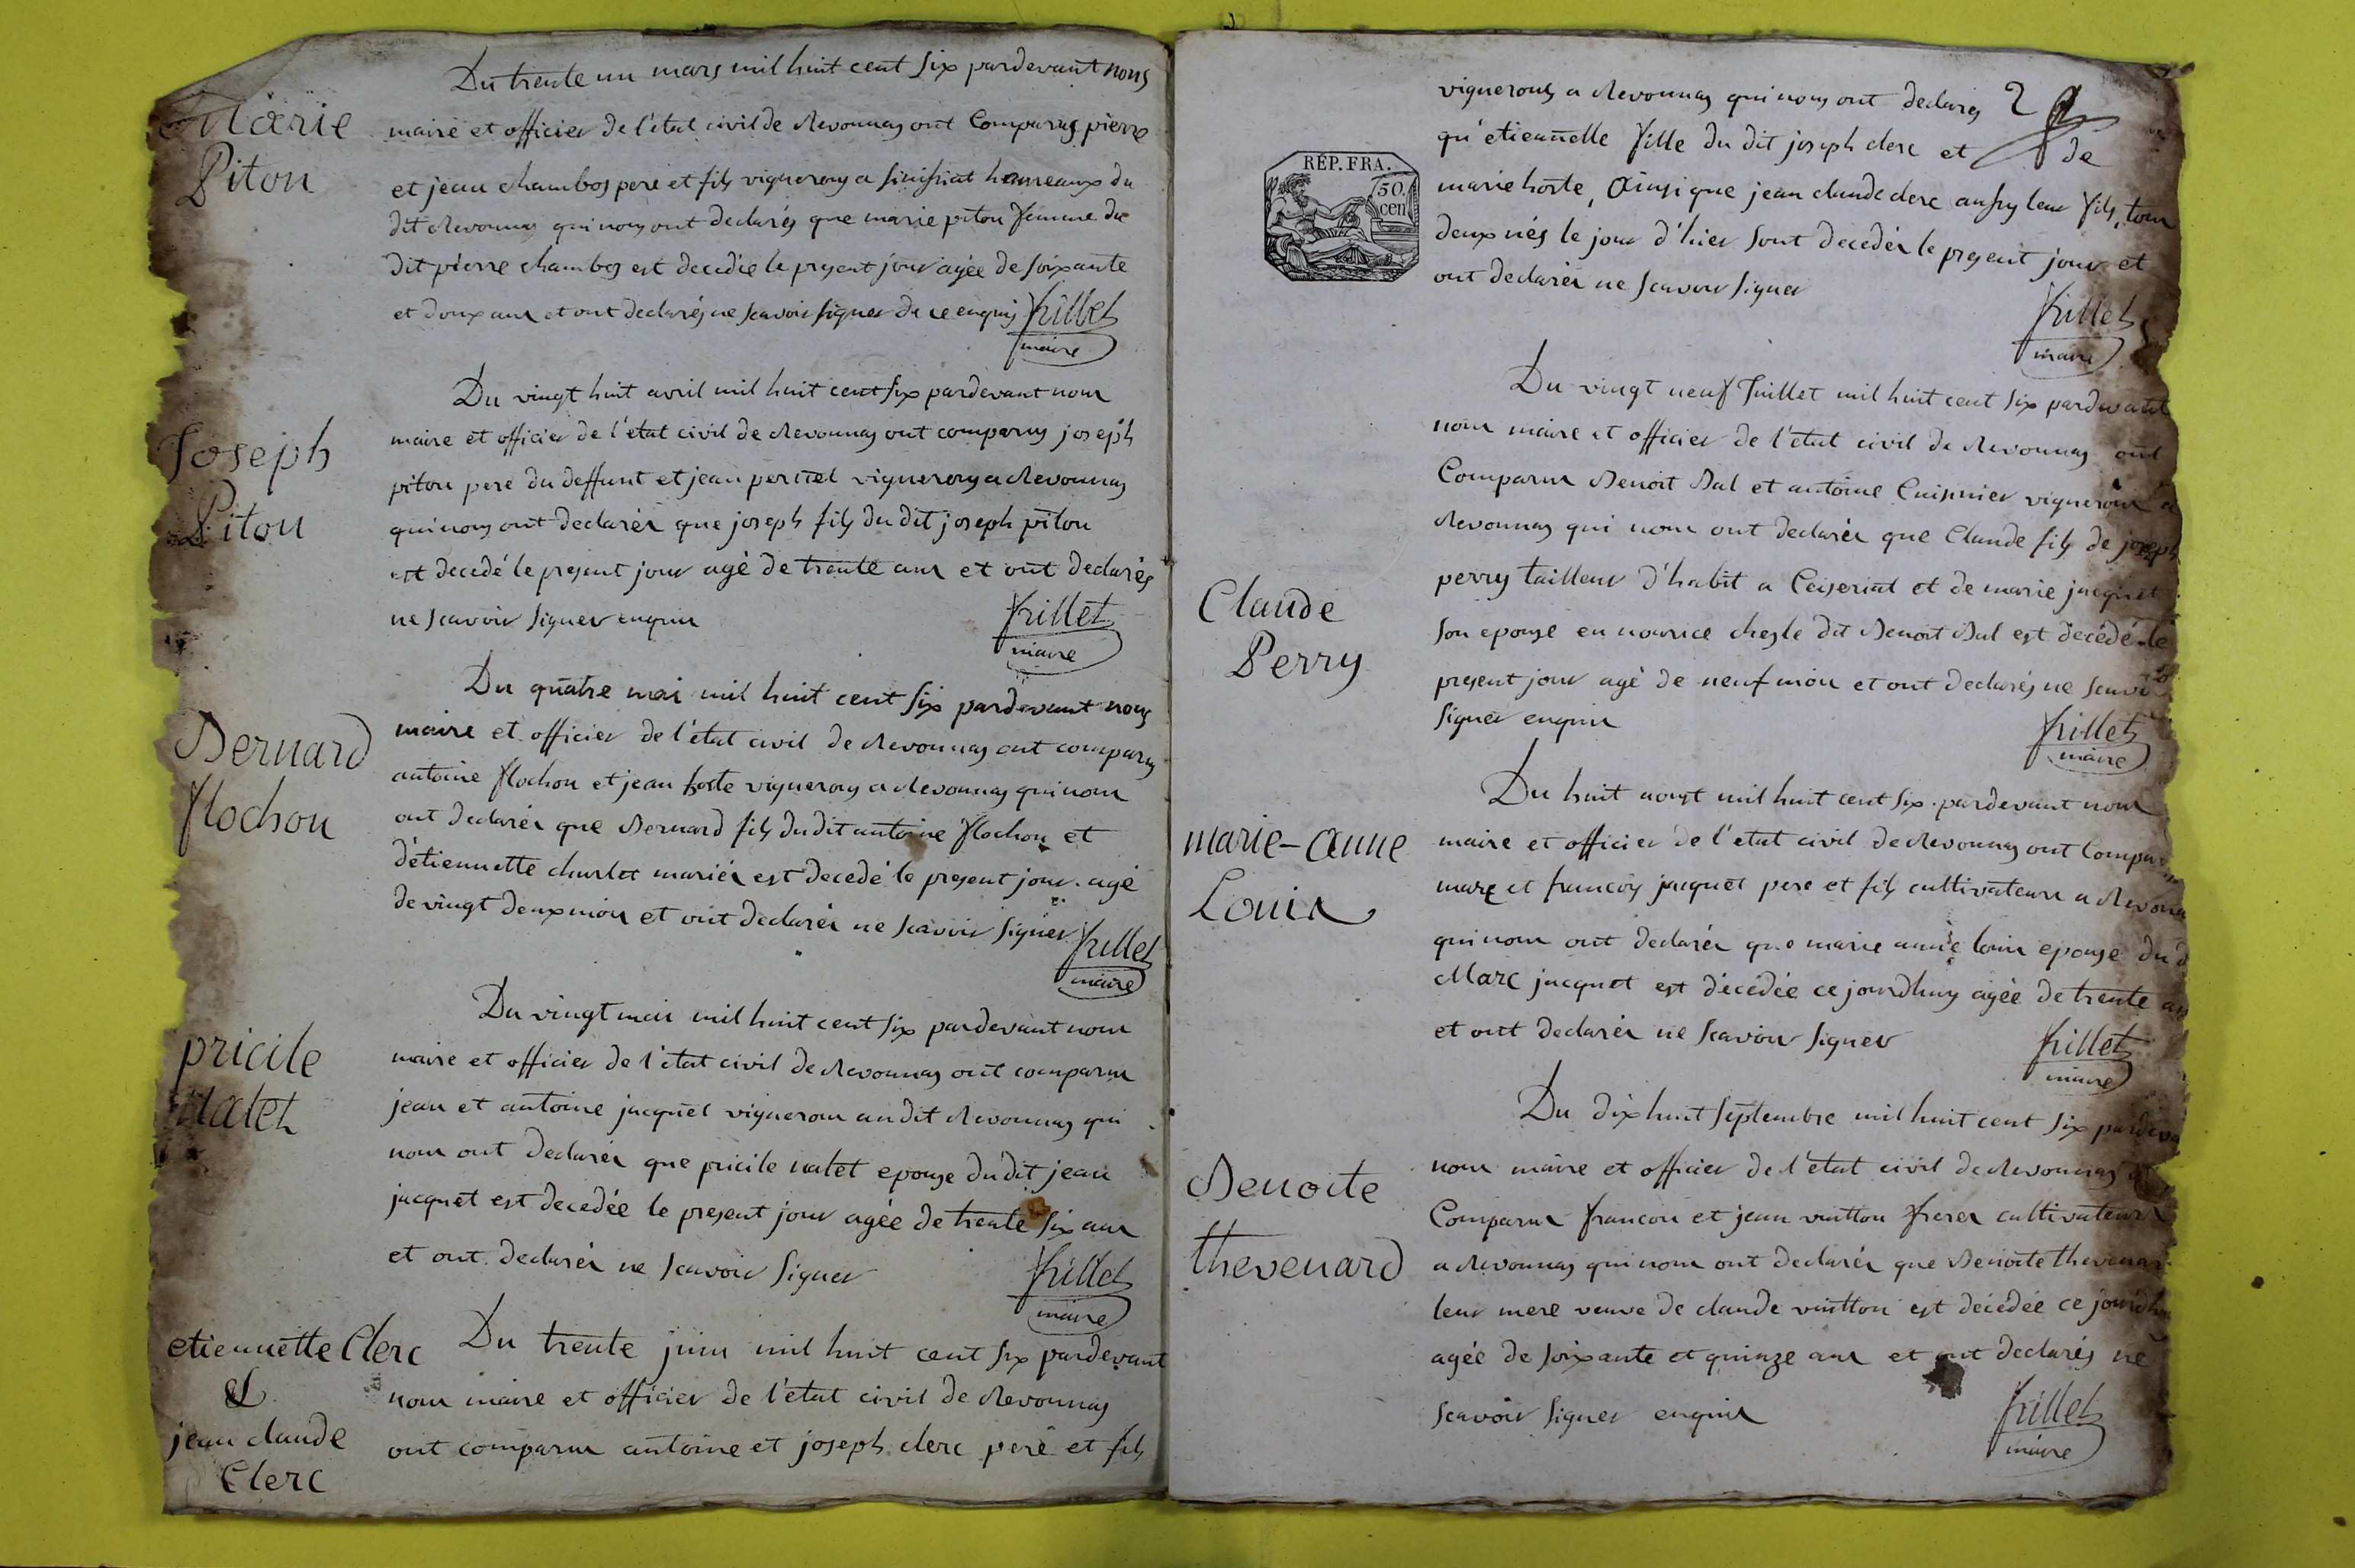 Marie
Piton
Du trente un mars mil huit cent six pardevant nous
maire et officier de l'état civil de Revonnas ont Comparus pierre
et jean chambos pere et fils vignerons a hameaux du
dit Revonnas qui nous ont declarés que marie piton femme du
dit pierre chambos est decedée le present jour agée de soixante
et doux ans et ont declarés ne scavoir signer de ce enquis frillet
maire
Joseph
Piton
Du vingt huit avril mil huit cent six pardevant nous
maire et officier de l'etat civil de Revonnas ont comparus joseph
piton pere du deffunt et jean vignerons a Revonnas
qui nous ont declarés que joseph fils du dit joseph piton
est decedé le present jour agé de trente ans et ont declarés
ne scavoir signer enquis frillet
maire
Bernard
flochon
Du quatre mai mil huit cent six pardevant nous
maire et officier de l'état civil de Revonnas ont comparus
antoine flochon et jean hoste vignerons a Revonnas qui nous
ont declarés que Bernard fils du dit antoine flochon et
d'étiennette charlet mariés est decedé le present jour agé
de vingt deux mois et ont declarés ne scavoir signer frillet
maire
pricile
Natet
Du vingt mai mil huit cent six pardevant nous
maire et officier de l'état civil de Revonnas ont comparus
jean et antoine jacquet vignerons au dit Revonnas qui
nous ont declarés que pricile natet epouse du dit jean
jacquet est decedée le present jour agée de trente six ans
et ont declarés ne scavoir signer frillet
maire
etiennette Clerc
&
jean claude
Clerc
Du trente juin mil huit cent six pardevant
nous maire et officier de l'état civil de Revonnas
ont comparus antoine et joseph clerc pere et fils
2
RÉP. FRA.
50
cen
vignerons a Revonnas qui nous ont declarés
qu'etiennette fille du dit joseph clerc et de
marie hoste, Ainsi que jean claude clerc aussy leur fils, tous
deux nés le jour d'hier sont decedés le present jour et
ont declarés ne scavoir signer
frillet
maire
Claude
Perry
Du vingt neuf Juillet mil huit cent six pardevant
nous maire et officier de l'état civil de Revonnas ont
Comparus Benoit Bal et antoine Cuisinier vignerons a
Revonnas qui nous ont declarés que Claude fils de joseph
perry tailleur d'habit a Ceiseriat et de marie jacquet
son epouse en nourice chez le dit Benoit Bal est decedé le
present jour agé de neuf mois et ont declarés ne scavoir
signer enquis frillet
maire
marie-Anne
Louis
Du huit aoust mil huit cent six pardevant nous
maire et officier de l'etat civil de Revonnas ont Comparus
marc et francois jacquet pere et fils cultivateurs a Revonnas
qui nous ont declarés que marie anne louis epouse du d
Marc jacquet est décédée ce jourdhuy agée de trente ans
et ont declarés ne scavoir signer frillet
maire
Benoite
thevenard
Du dix huit septembre mil huit cent six pardeva
nous maire et officier de l'état civil de Revonnas
Comparus francois et jean vuitton freres cultivateurs
a Revonnas qui nous ont declarés que Benoite thevenar
leur mere veuve de claude vuitton est decedée ce jourdhu
agée de soixante et quinze ans et ont declarés ne
scavoir signer enquis frillet
maire